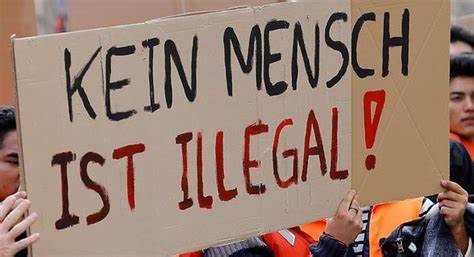 KEIN MENSCH!
IST ILLEGAL!